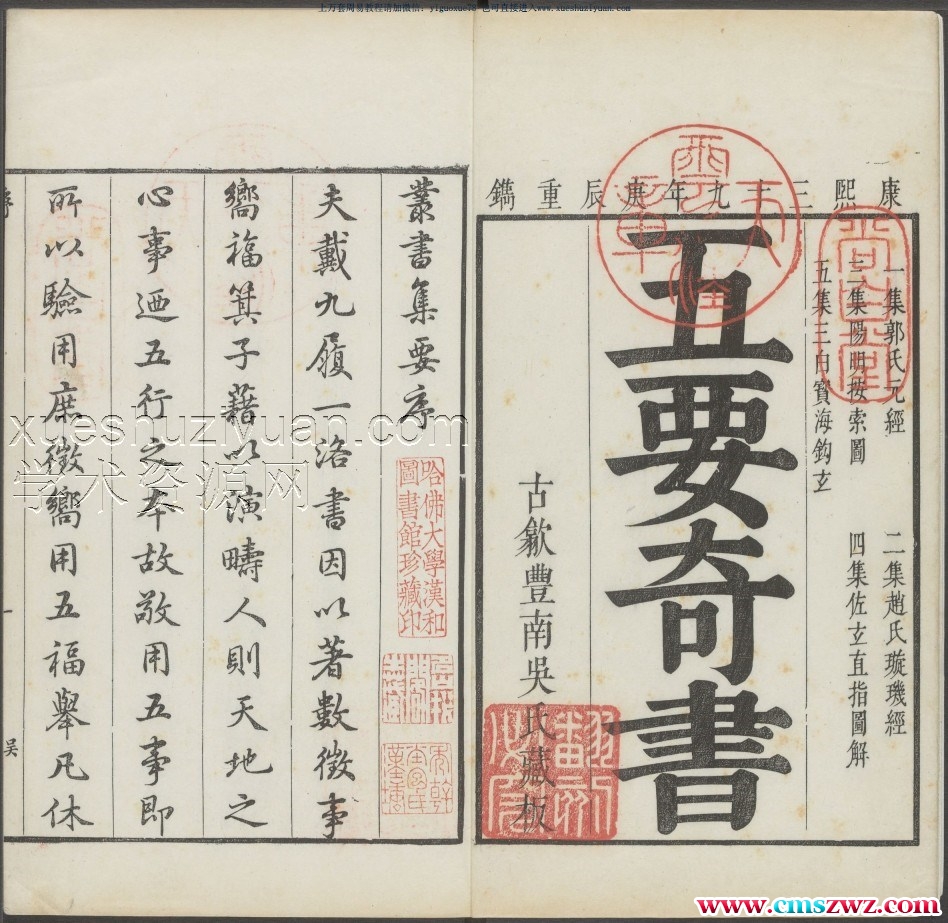 上万套周易教程请加微信：yiguoxue78 也可直接进入www.xueshuziyuan.com
康熙三十九年庚辰重鐫
一集郭氏元經 二集趙氏璇璣經
三集陽明按索圖 四集佐玄直指圖解
五集三白寶海鈎玄
五要奇書
古歙豐南吳氏藏板
叢書集要序
哈佛大學漢和
圖書館珍藏印
夫戴九履一洛書因以著數徵事
嚮福箕子藉以演疇人則天地之
心事迺五行之本故敬用五事即
所以驗用庶徵嚮用五福舉凡休
序
一
吴
xueshuziyuan.com
学术资源网
www.cmszwz.com